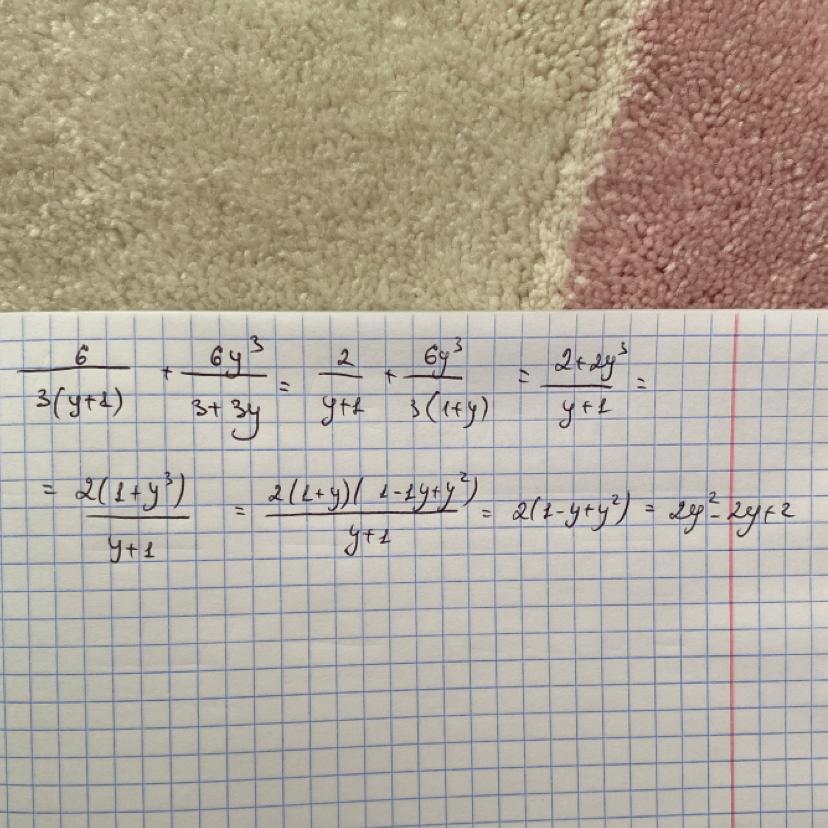 6/(3(y+1)) + 6y³/(3+3y) = 2/(y+1) + 6y³/(3(1+y)) = (2+2y³)/(y+1) =
= 2(1+y³)/(y+1) = 2(1+y)(1-1y+y²)/(y+1) = 2(1-y+y²) = 2y²-2y+2